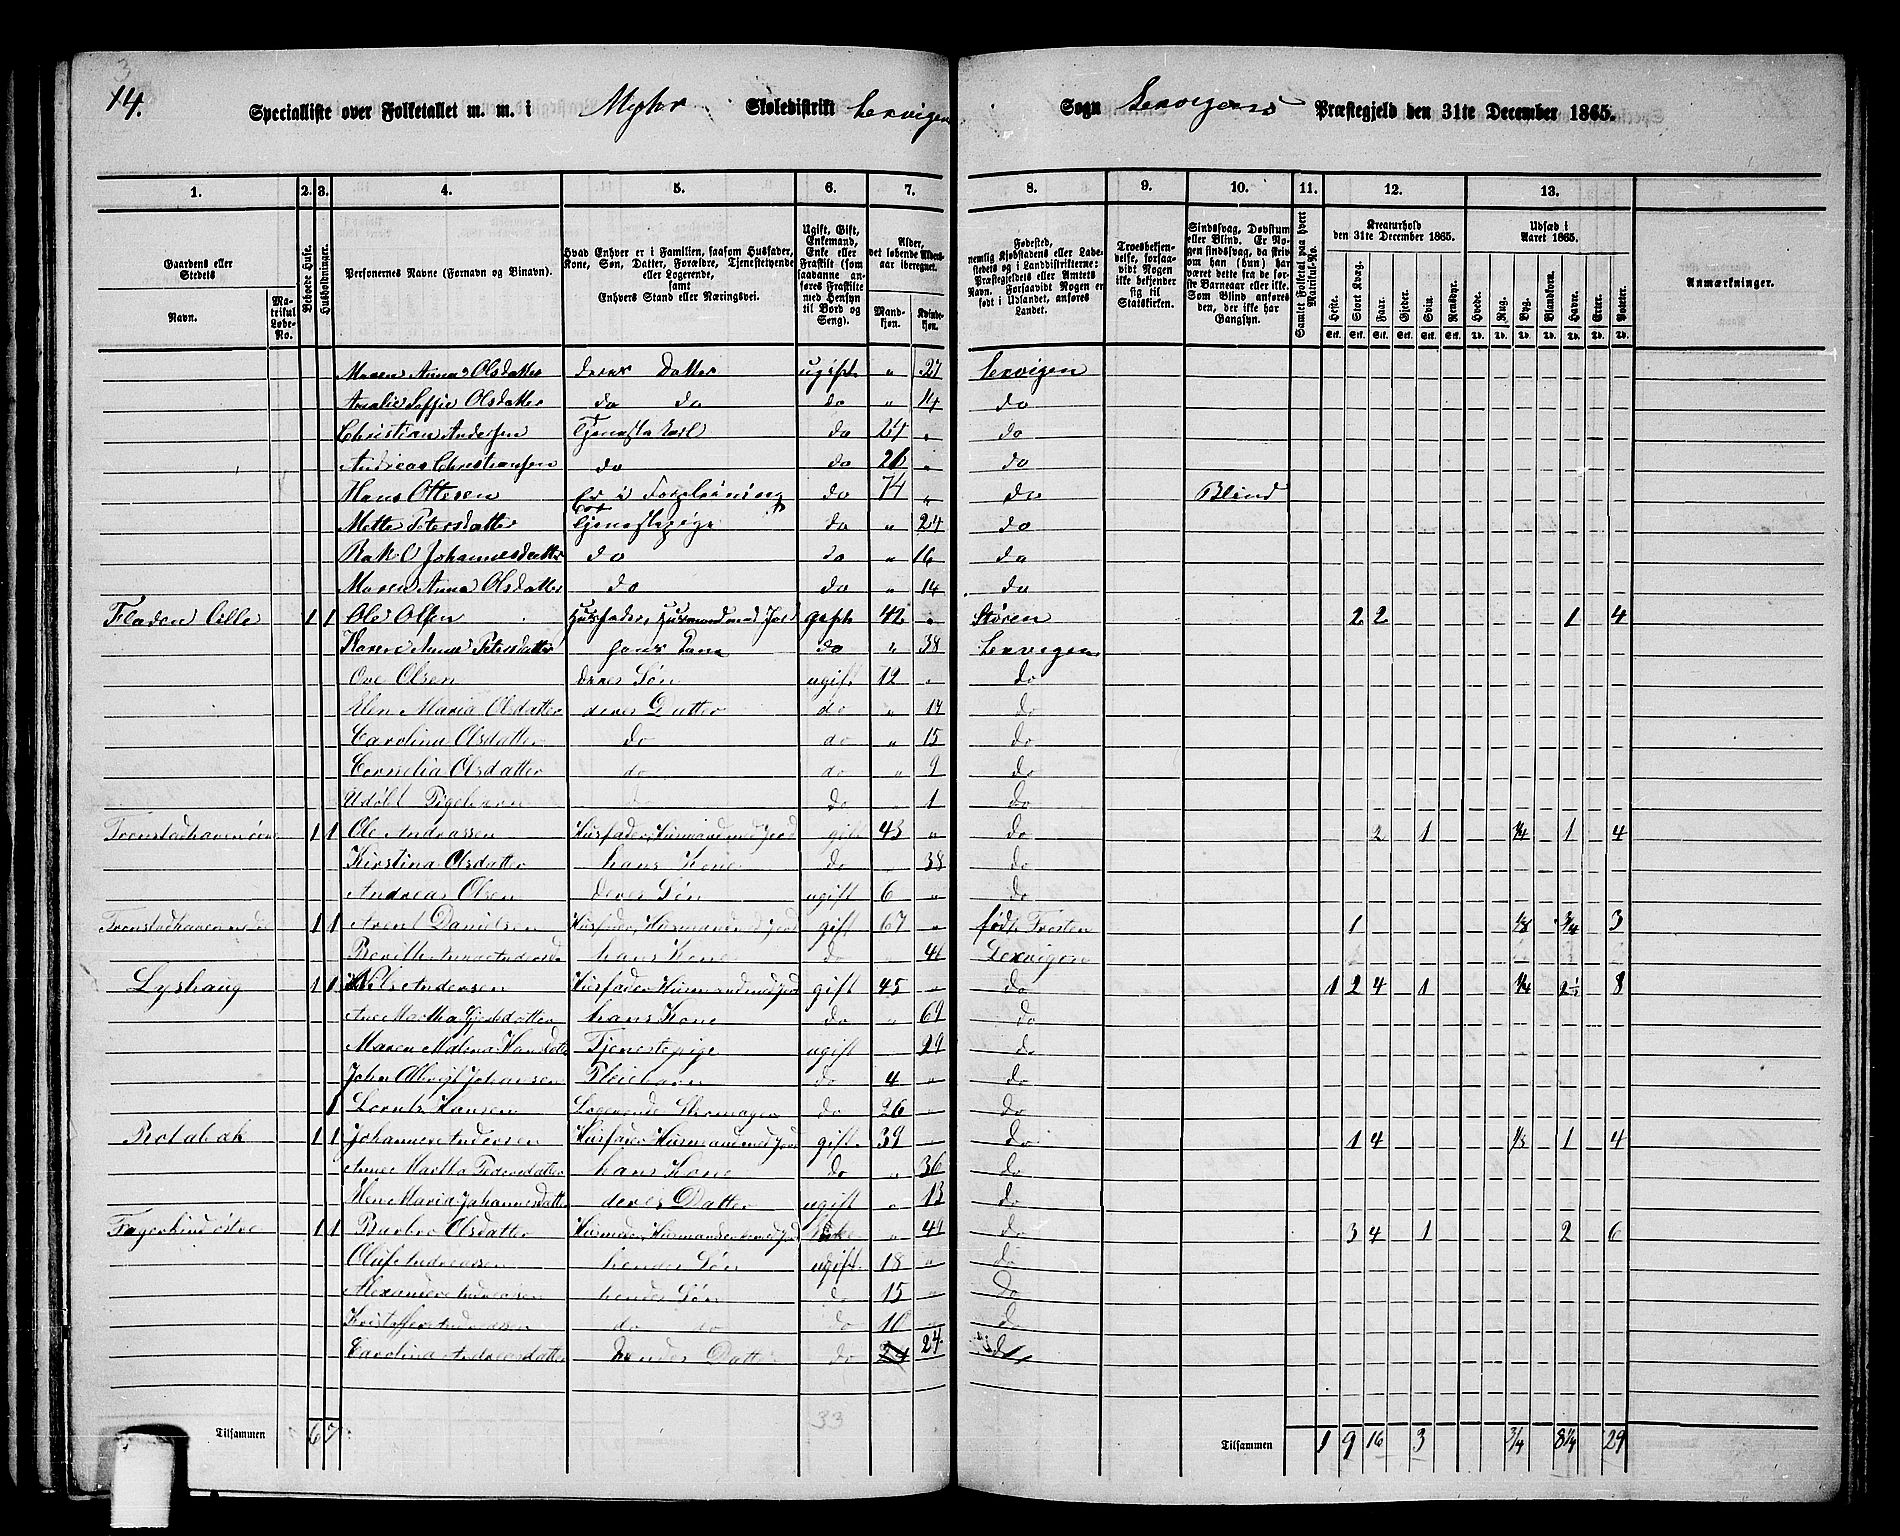 3
14.
Specialliste over Folketallet m. m. i Myhr Skoledistrikt Lexvigens Sogn Lexvigens Præstegjeld den 31te December 1865.
1. 2. 3. 4. 5. 6. 7. 8. 9. 10. 11. 12. 13.
Gaardens eller Stedets Navn.
Matrikul Løbe-No.
Beboede Huse.
Husholdninger.
Personernes Navne (Fornavn og Binavn).
Hvad Enhver er i Familien, saasom Husfader, Kone, Søn, Datter, Forældre, Tjenestetyende eller Logerende, samt Enhvers Stand eller Næringsvei.
Ugift, Gift, Enkemand, Enke eller Fraskilt (som saadanne anføres Fraskilte med Hensyn til Bord og Seng).
Alder, det løbende Alders-aar iberegnet.
Mandkjøn. Kvindekjøn.
Fødested, nemlig Kjøbstadens eller Ladestedets og i Landdistrikterne: Præstegjeldets eller Amtets Navn. Forsaavidt Nogen er født i Udlandet, anføres Landet.
Troesbekjendelse, forsaavidt Nogen ikke bekjender sig til Statskirken.
Sindssvag, Døvstum eller Blind. Er Nogen sindssvag, da skrives om han (hun) har været dette fra de første Barneaar eller ikke. Som Blind anføres den, der ikke har Gangsyn.
Samlet Folketal paa hvert Matrikul-No.
Kreaturhold den 31te December 1865.
Heste. Stort Kvæg. Faar. Gjeder. Svin. Rensdyr.
Udsæd i Aaret 1865.
Hvede. Rug. Byg. Blandkorn. Havre. Erter. Poteter.
Anmærkninger.
Maren Anna Olsdatter deres Datter ugift " 27 Lexvigen
Amalie Soffie Olsdatter do do do " 14 do
Christian Andersen Tjenestekarl do 24 " do
Andreas Christiansen do do 26 " do
Hans Ottesen Er i Forpleining do 74 " do Blind
Mette Petersdatter Tjenestepige do " 24 do
Johannesdatter do do " 16 do
Maren Anna Olsdatter do do " 14 do
Fladen Lille 1 1 Ole Olsen Husfader, Husmand med Jord gift 42 " Støren 2 2 1 4
Karen Anna Petersdatter hans Kone do " 38 Lexvigen
Ove Olsen deres Søn ugift 12 " do
Elen Maria Olsdatter deres Datter do " 17 do
Carolina Olsdatter do do " 15 do
Cornelia Olsdatter do do " 9 do
Udøbt Pigebarn do " 1 do
1 1 Ole Andreassen Husfader, Husmand med Jord gift 43 " do 2 1 1/4 1 4
Kirstina Olsdatter hans Kone do " 38 do
Andreas Olsen deres Søn ugift 6 " do
1 1 Arent Danielsen Husfader, Husmand med Jord gift 67 " født Frosten 1 1/8 3/4 3
hans Kone do " 41 Lexvigen
Lyshaug 1 1 Nils Andersen Husfader, Husmand med Jord gift 45 " do 1 2 4 1 1/4 8
Ane Martha hans Kone do " 69 do
Maren Malena Hansdatter Tjenestepige ugift " 29 do
John Albrigt Johansen Pleiebarn do 4 " do
1 Lornts Hansen Logerende do 26 " do
1 1 Johannes Andersen Husfader, Husmand med Jord gift 39 " do 1 4 1/8 1 4
Anne Martha Pedersdatter hans Kone do " 36 do
Elen Maria Johannesdatter deres Datter ugift " 13 do
1 1 Olsdatter Enke " 49 do 3 4 1 2 6
Oluf Andreassen hendes Søn ugift 18 " do
Andreassen hendes Søn do 15 " do
Andreassen do do do 10 " do
Carolina Andreasdatter hendes Datter do 24 do
Tilsammen 6 7 33
Tilsammen 1 9 16 3 3/4 8 1/4 29